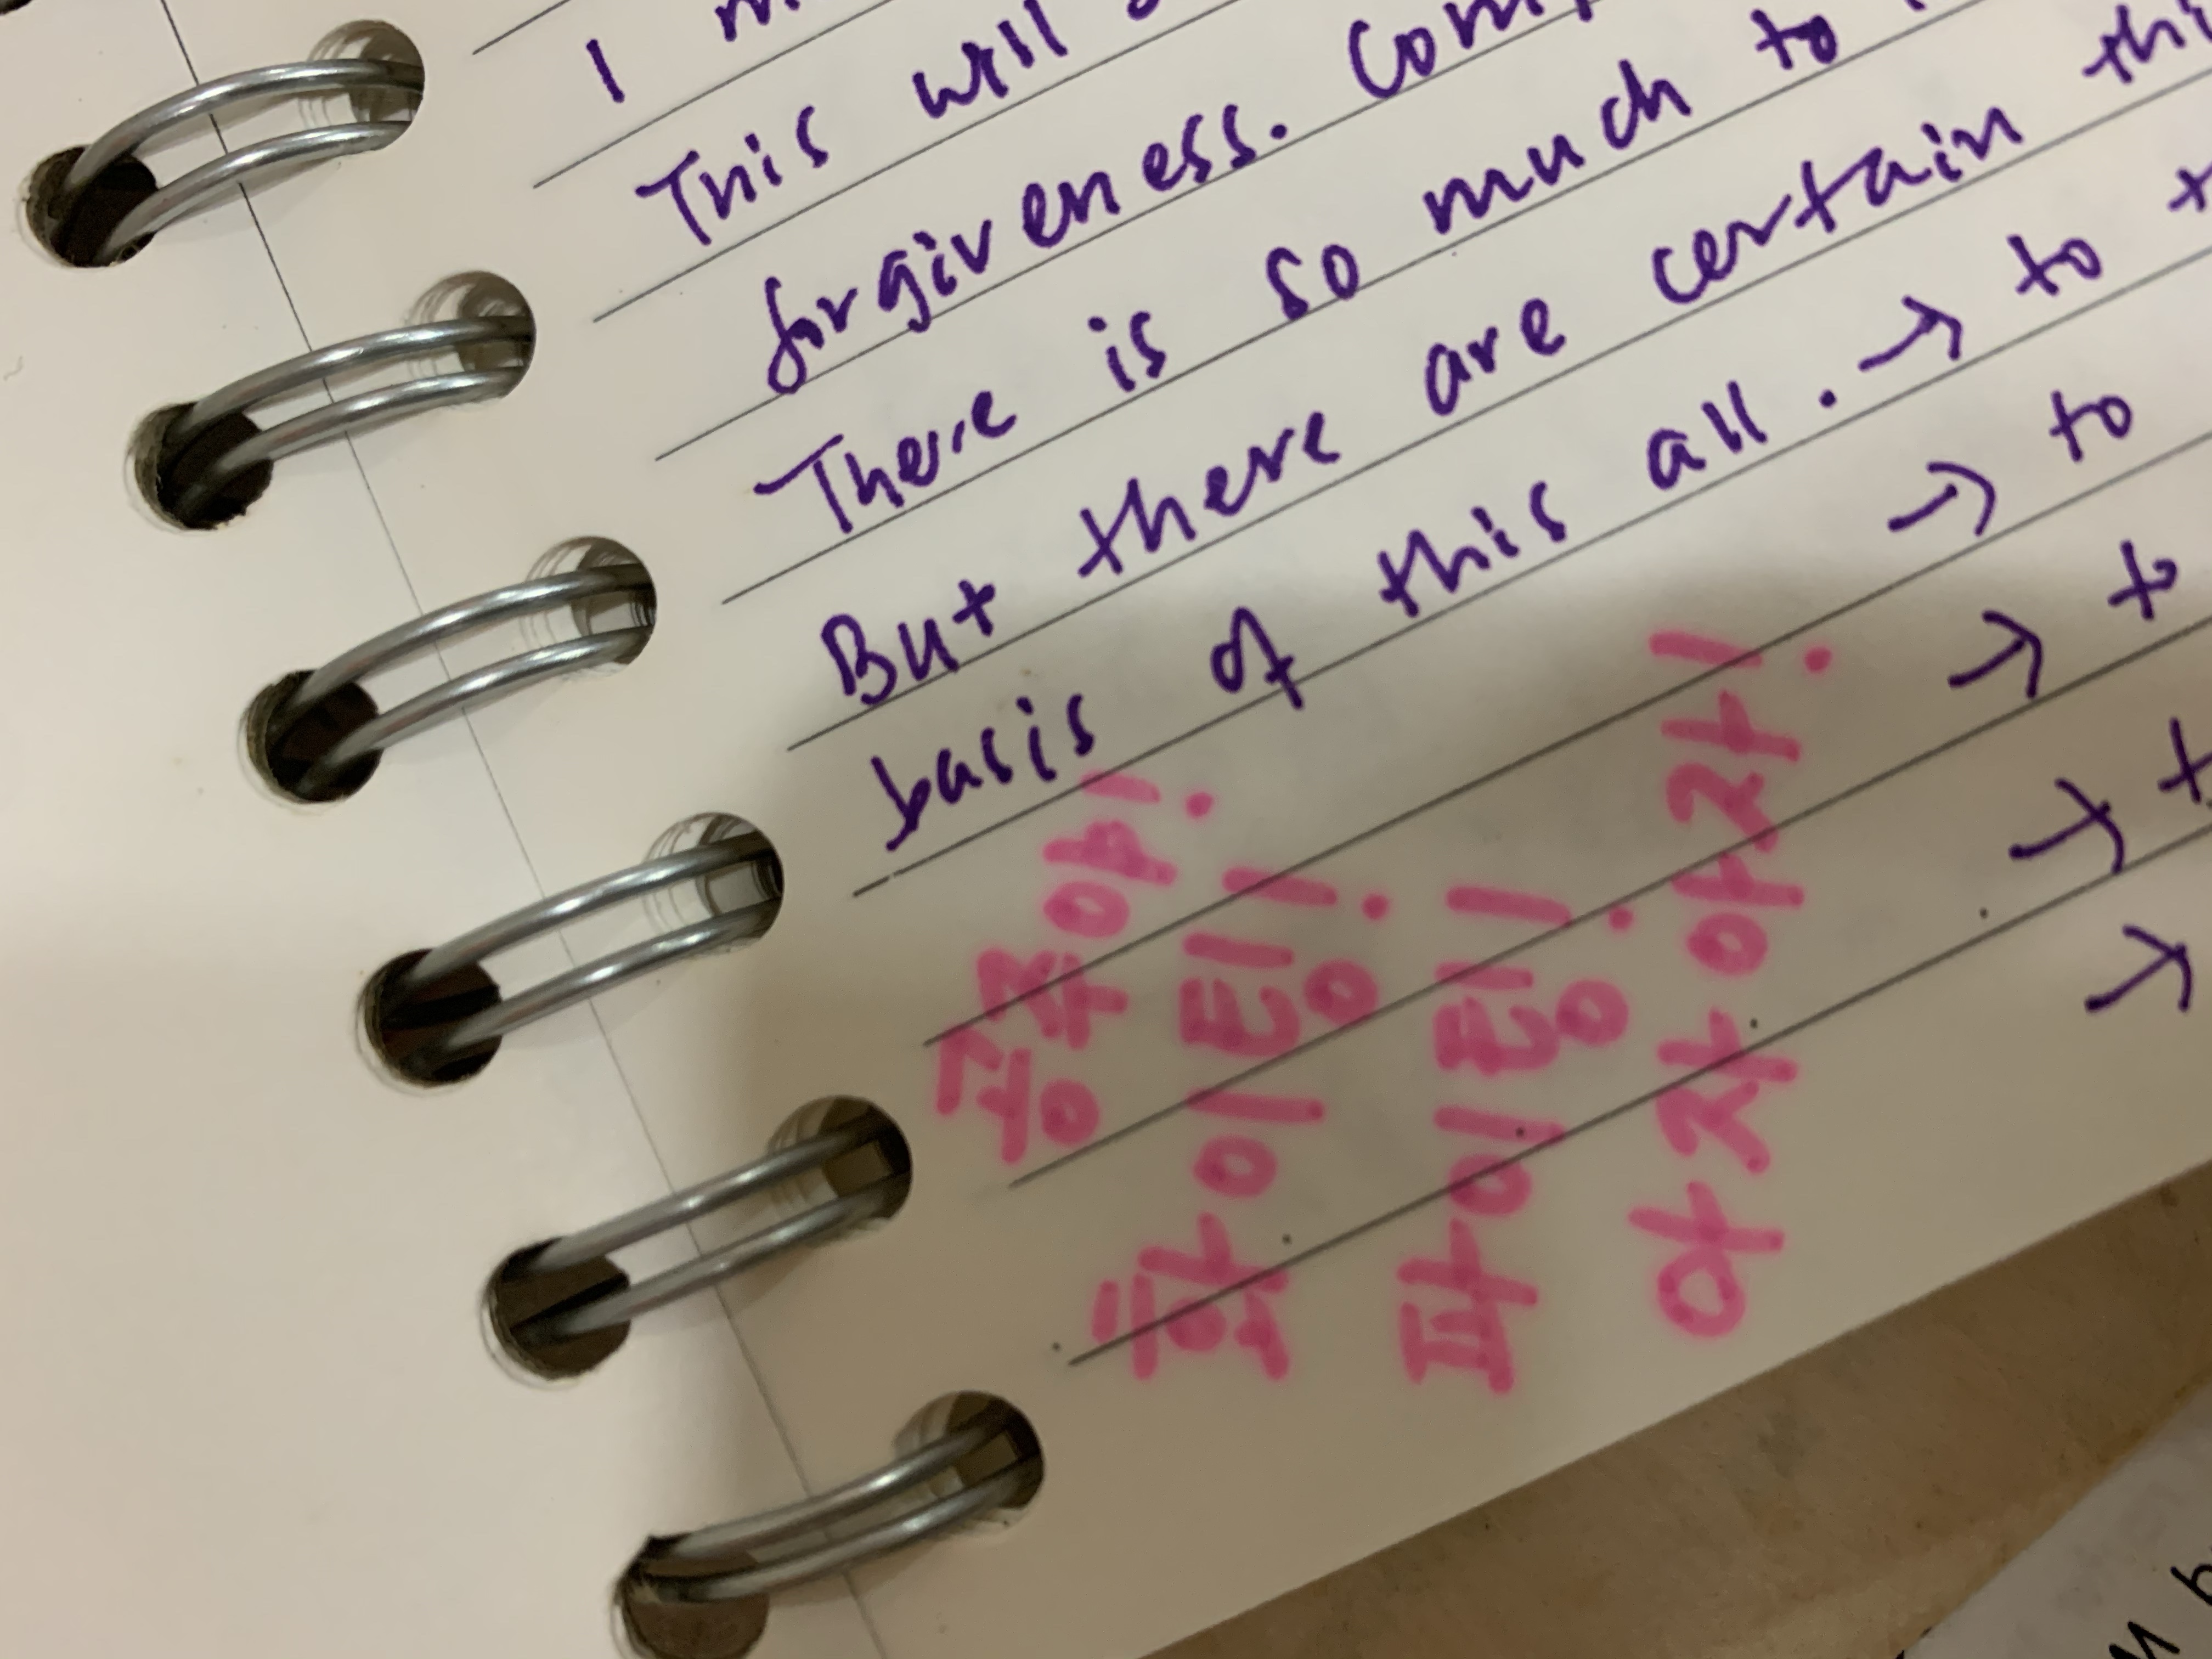 I
This will
forgiveness.
There is so much to
But there are certain
basis of this all. → to
→ to
→ to
→
→
공주야!
화이팅!
파이팅!
아자아자!